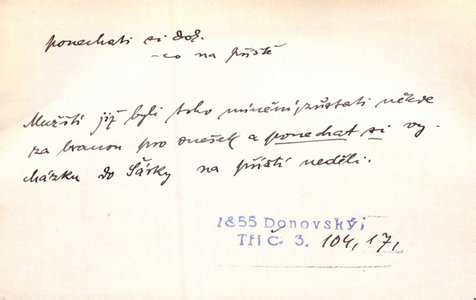 ponechati si dok.
– co na příště
Mužští již byli toho mínění, zůstati někde
za branou pro dnešek a ponechat si vy-
cházku do Šárky na příští neděli.
1855 Donovský,
Tři Č. 3. 104, 17,